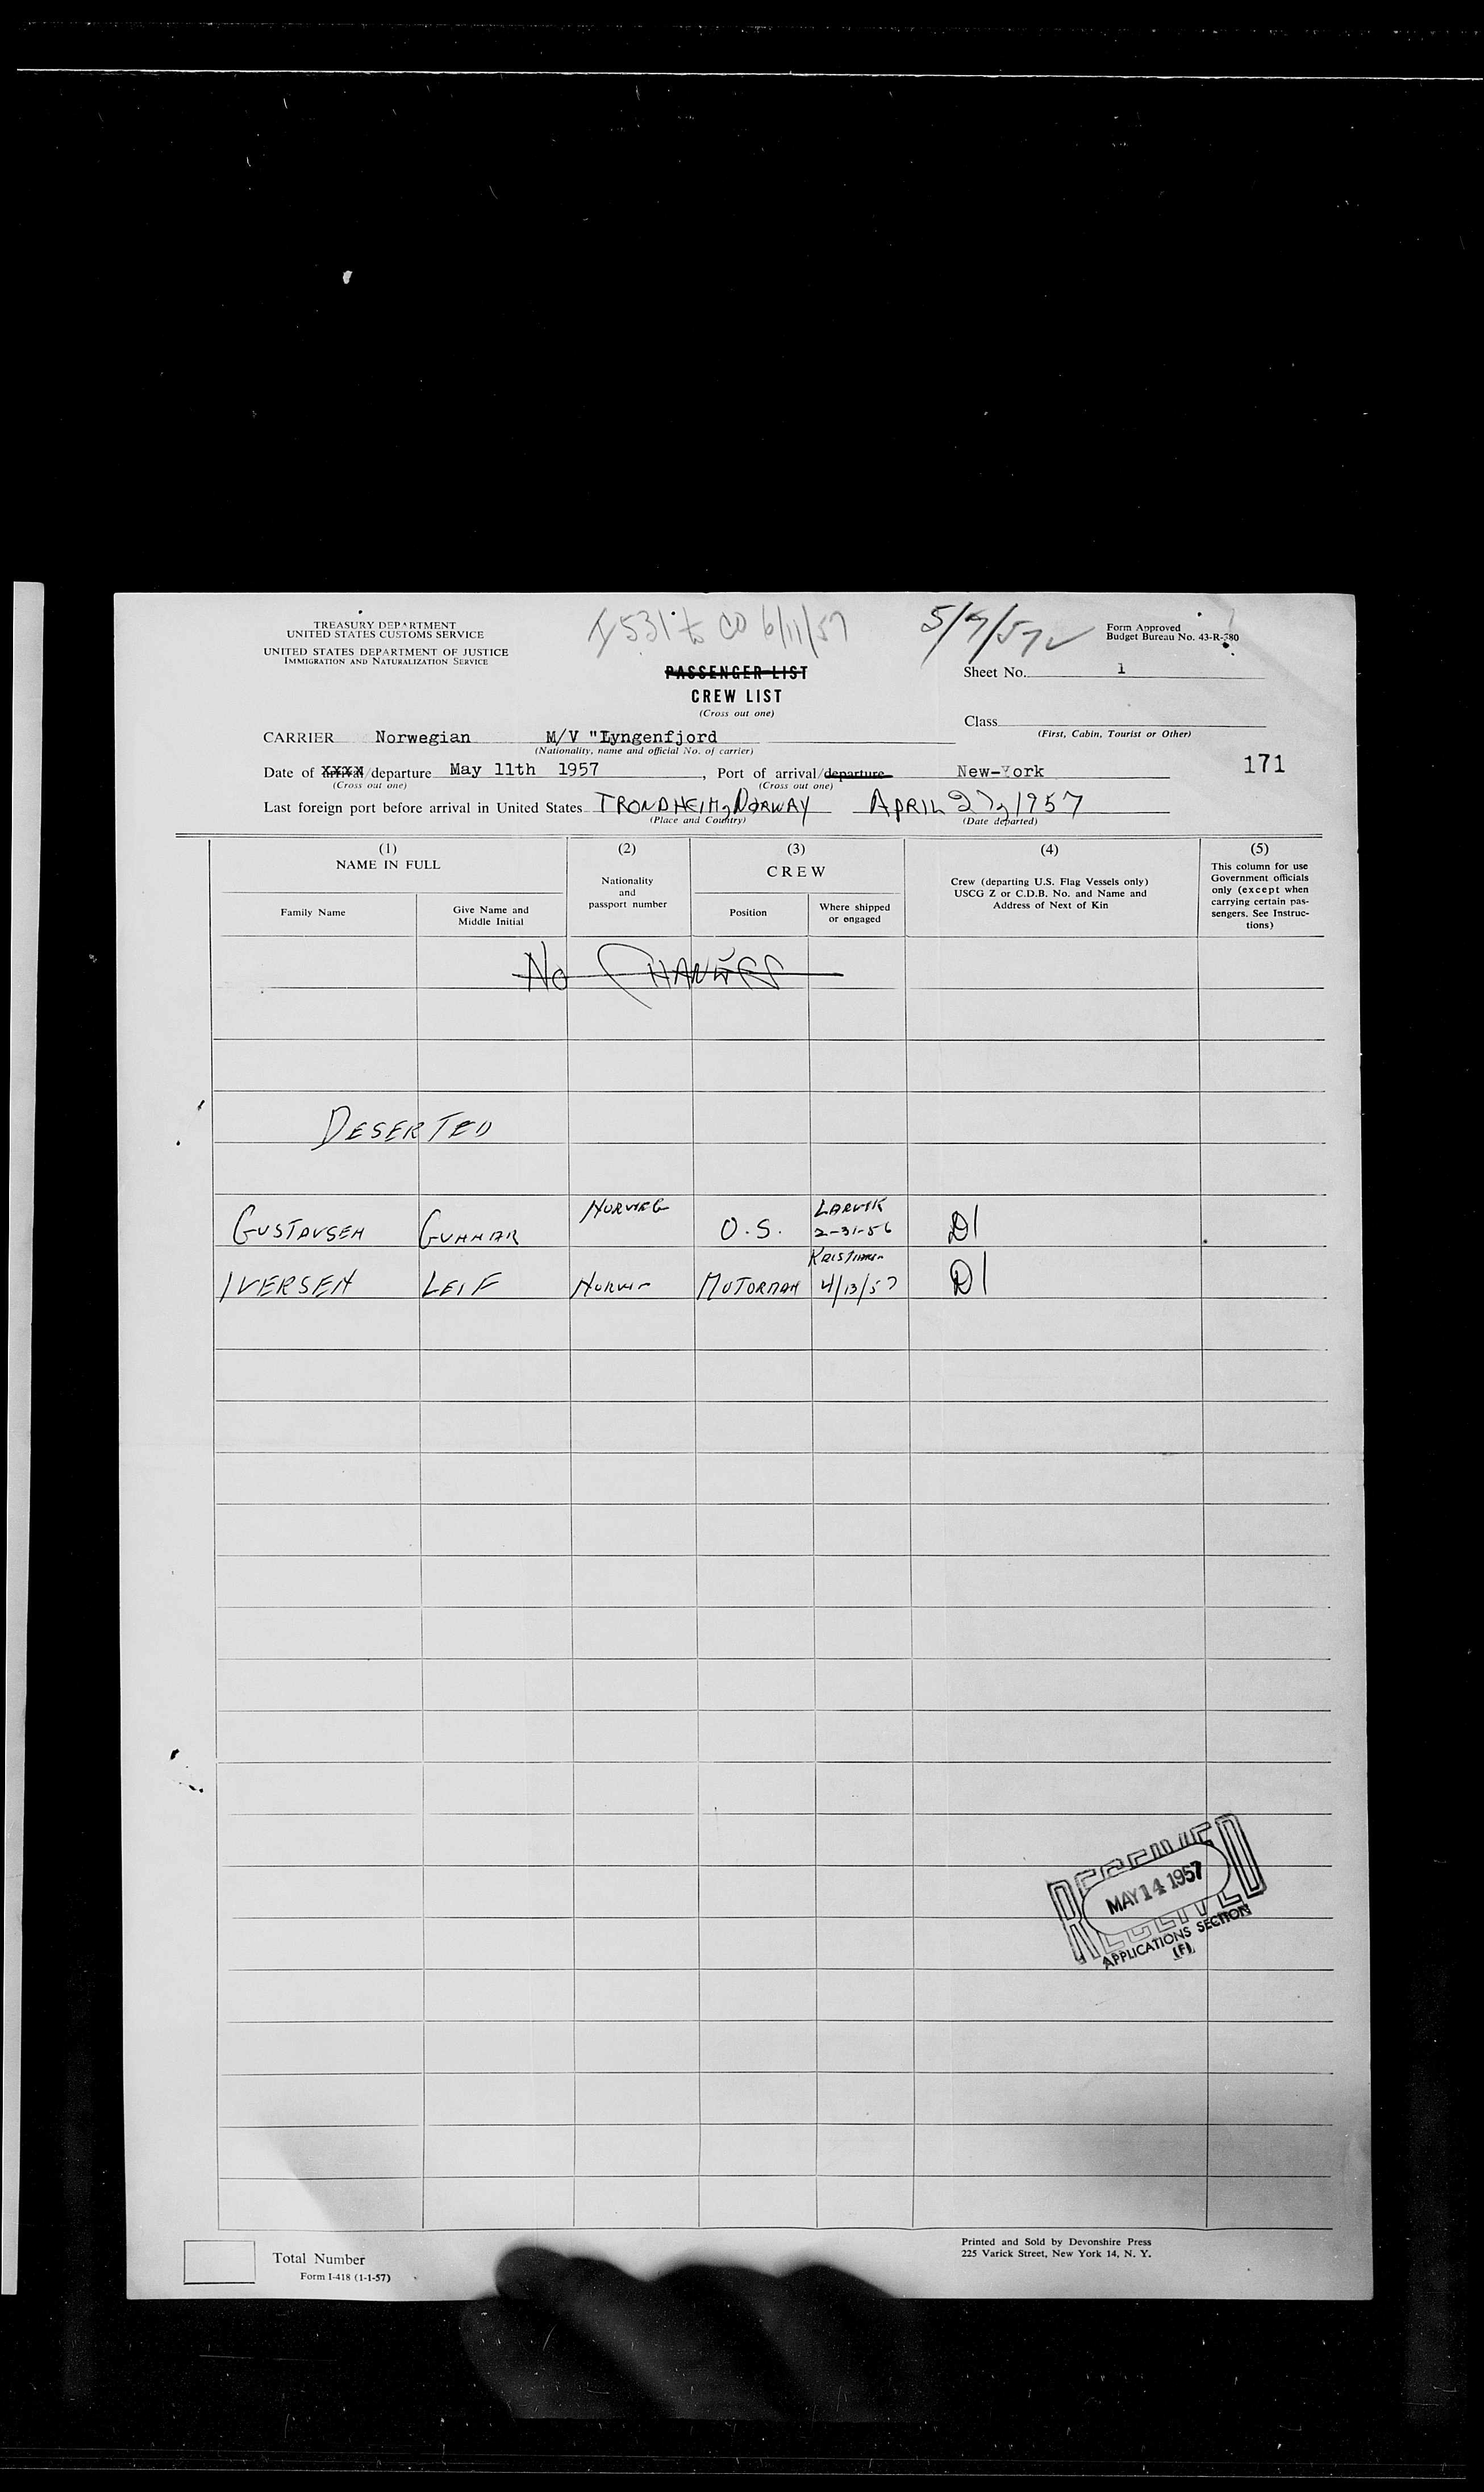 I 531 to CO 6/11/57
5/9/57
TREASURY DEPARTMENT
UNITED STATES CUSTOMS SERVICE
UNITED STATES DEPARTMENT OF JUSTICE
IMMIGRATION AND NATURALIZATION SERVICE
Form Approved
Budget Bureau No. 43-R-380
PASSENGER LIST
CREW LIST
(Cross out one)
Sheet No. 1
Class
(First, Cabin, Tourist or Other)
CARRIER Norwegian M/V "Lyngenfjord
(Nationality, name and official No. of carrier)
171
Date of arrival/departure May 11th 1957, Port of arrival/departure New-York
(Cross out one) (Cross out one)
Last foreign port before arrival in United States TRONDHEIM, NORWAY APRIL 27, 1957
(Place and Country) (Date departed)
(1) (2) (3) (4) (5)
NAME IN FULL
Family Name
Give Name and
Middle Initial
Nationality
and
passport number
CREW
Position
Where shipped
or engaged
Crew (departing U.S. Flag Vessels only)
USCG Z or C.D.B. No. and Name and
Address of Next of Kin
This column for use
Government officials
only (except when
carrying certain pas-
sengers. See Instruc-
tions)
NO CHANGES
DESERTED
GUSTAVSEN GUNNAR NORWEG O.S. LARVIK 2-31-56 D1
IVERSEN LEIF MOTORMAN 4/13/57 D1
RECEIVED
MAY 14 1957
RECEIVED
APPLICATIONS SECTION
(F)
Total Number
Form I-418 (1-1-57)
Printed and Sold by Devonshire Press
225 Varick Street, New York 14, N. Y.